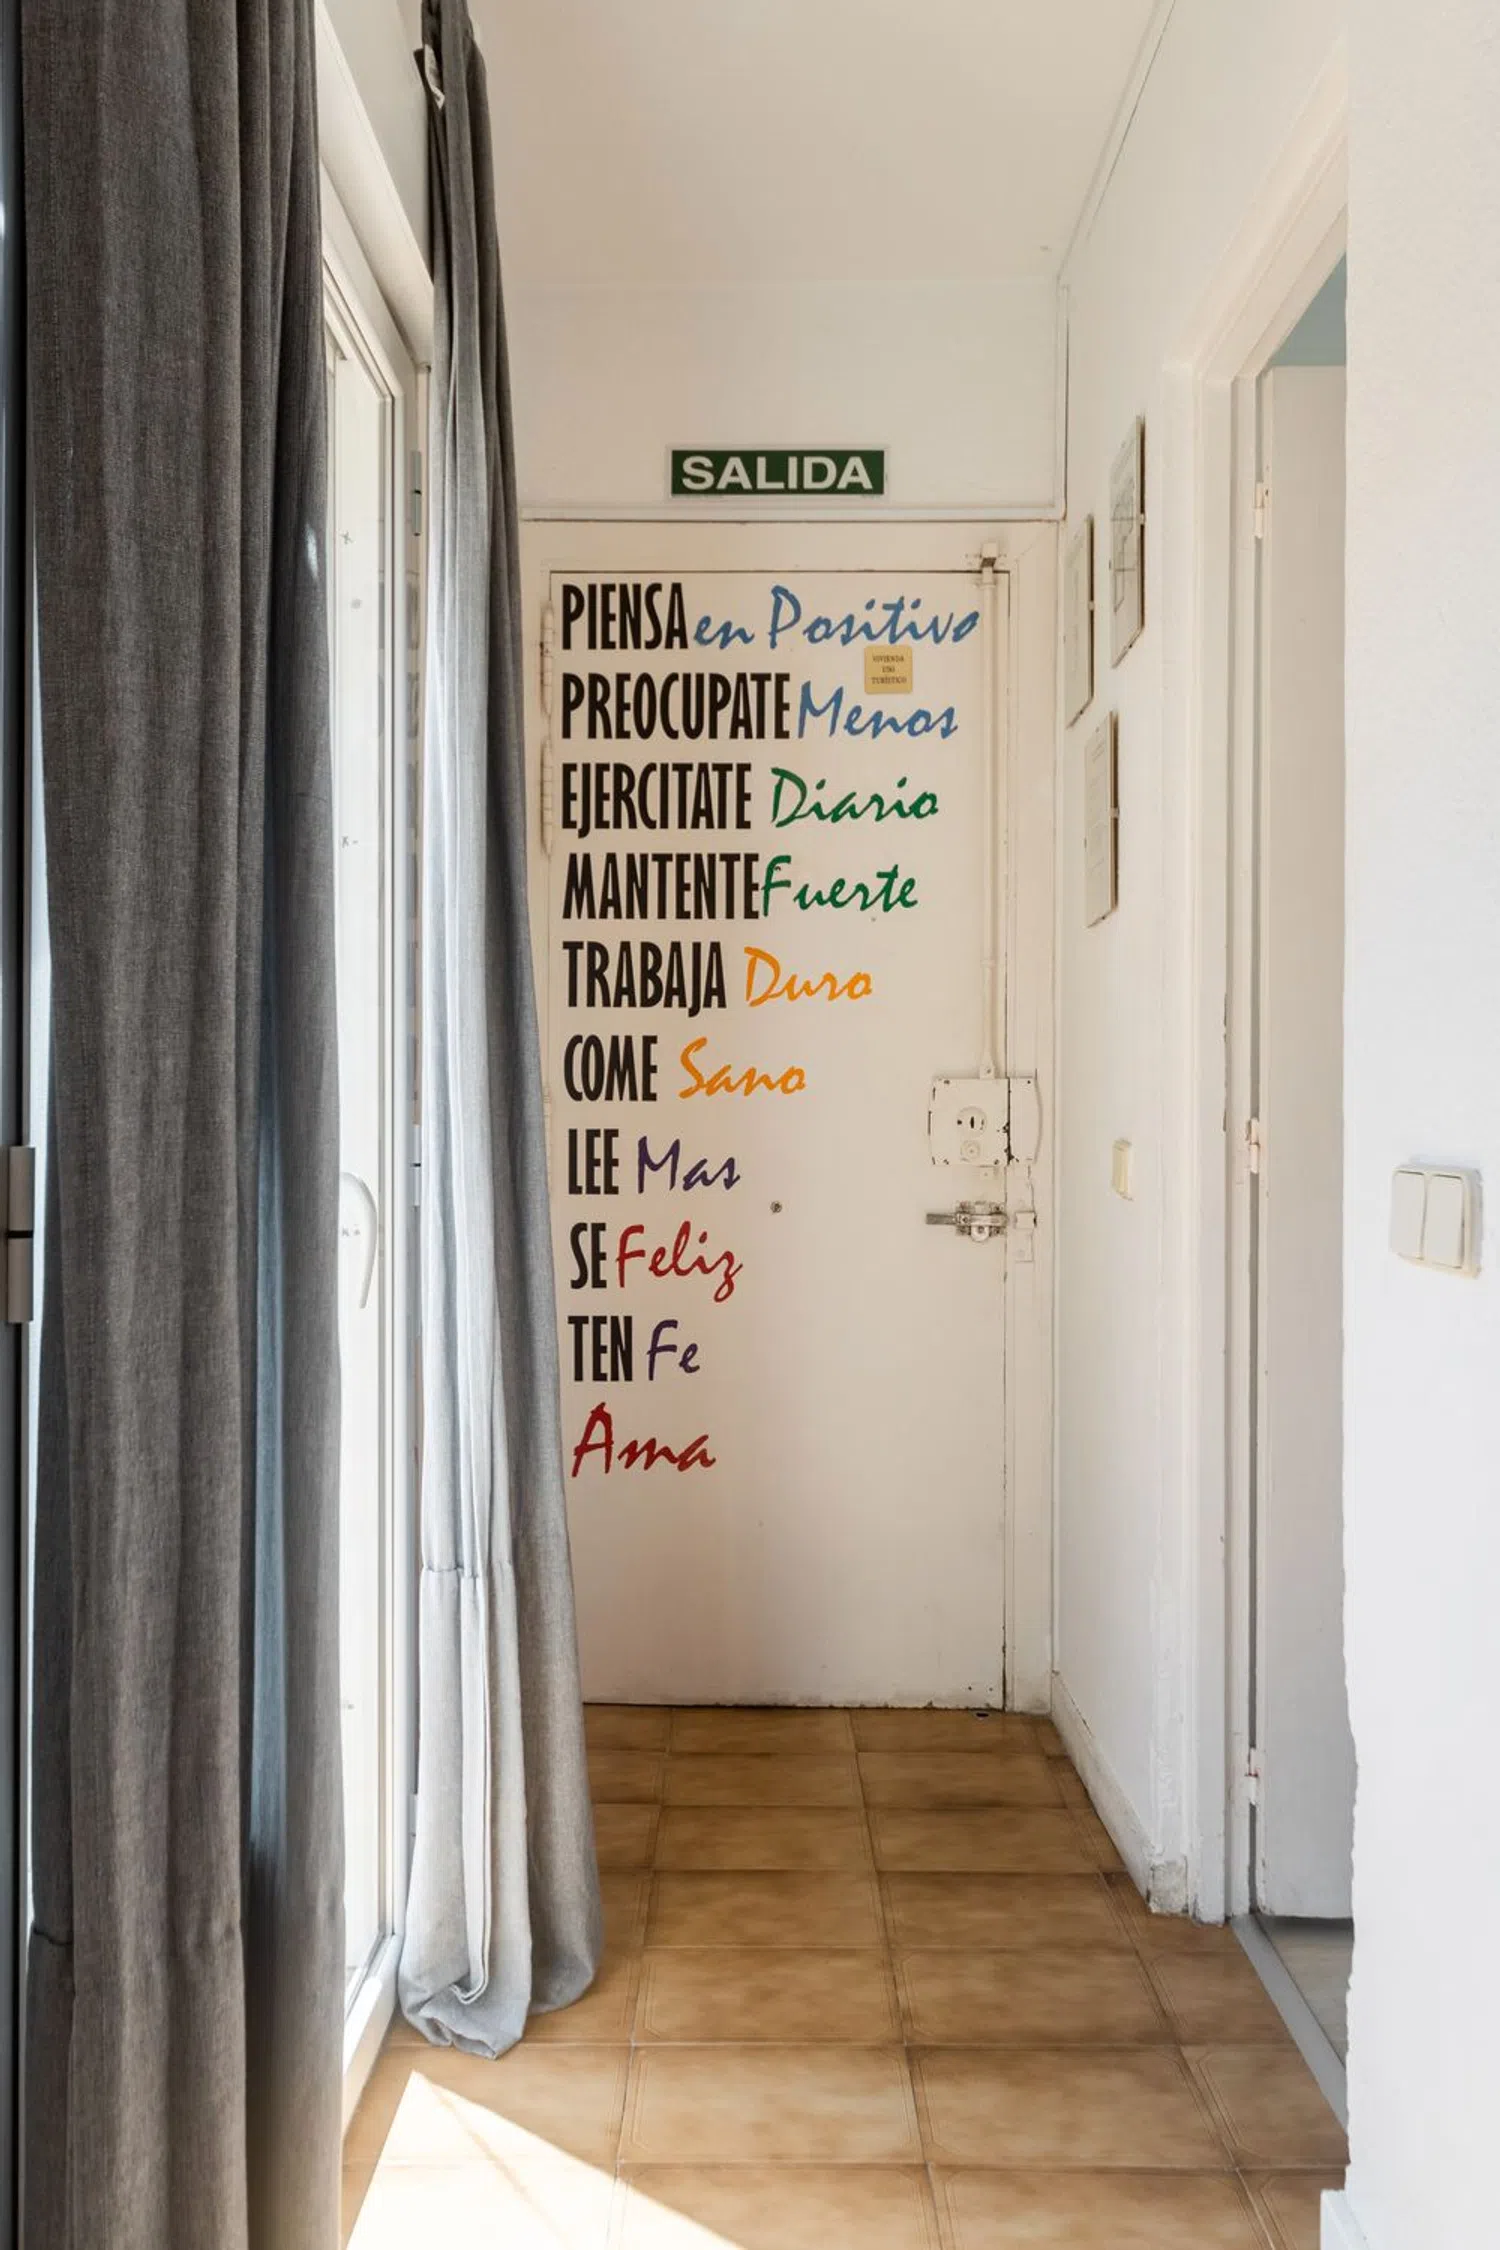 SALIDA
PIENSA en Positivo
VIVIENDA
USO
TURÍSTICO
PREOCUPATE Menos
EJERCITATE Diario
MANTENTE Fuerte
TRABAJA Duro
COME Sano
LEE Mas
SE Feliz
TEN Fe
Ama